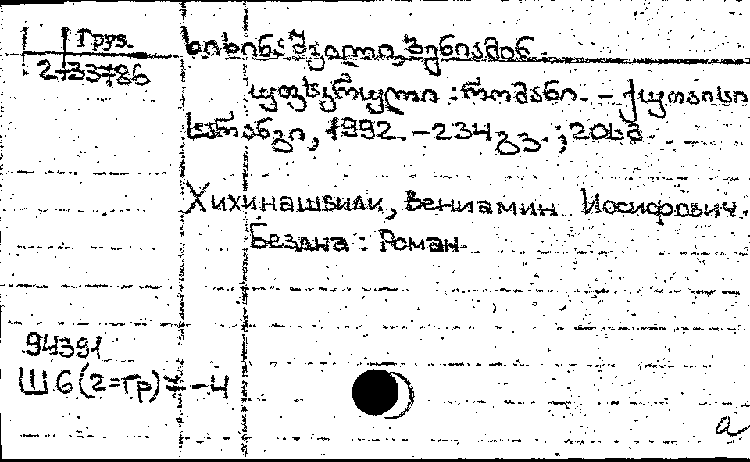 Груз.
2-33786
ხიხინაშვილი, ვენიამინ.
უფსკრული : რომანი. – ქუთაისი
საბანკი, 1992. – 234 გვ. ; 20 სმ.
Хихинашвили, Вениамин Иосифович.
Бездна : Роман.
94391
Ш6(2=Гр)7-4
a